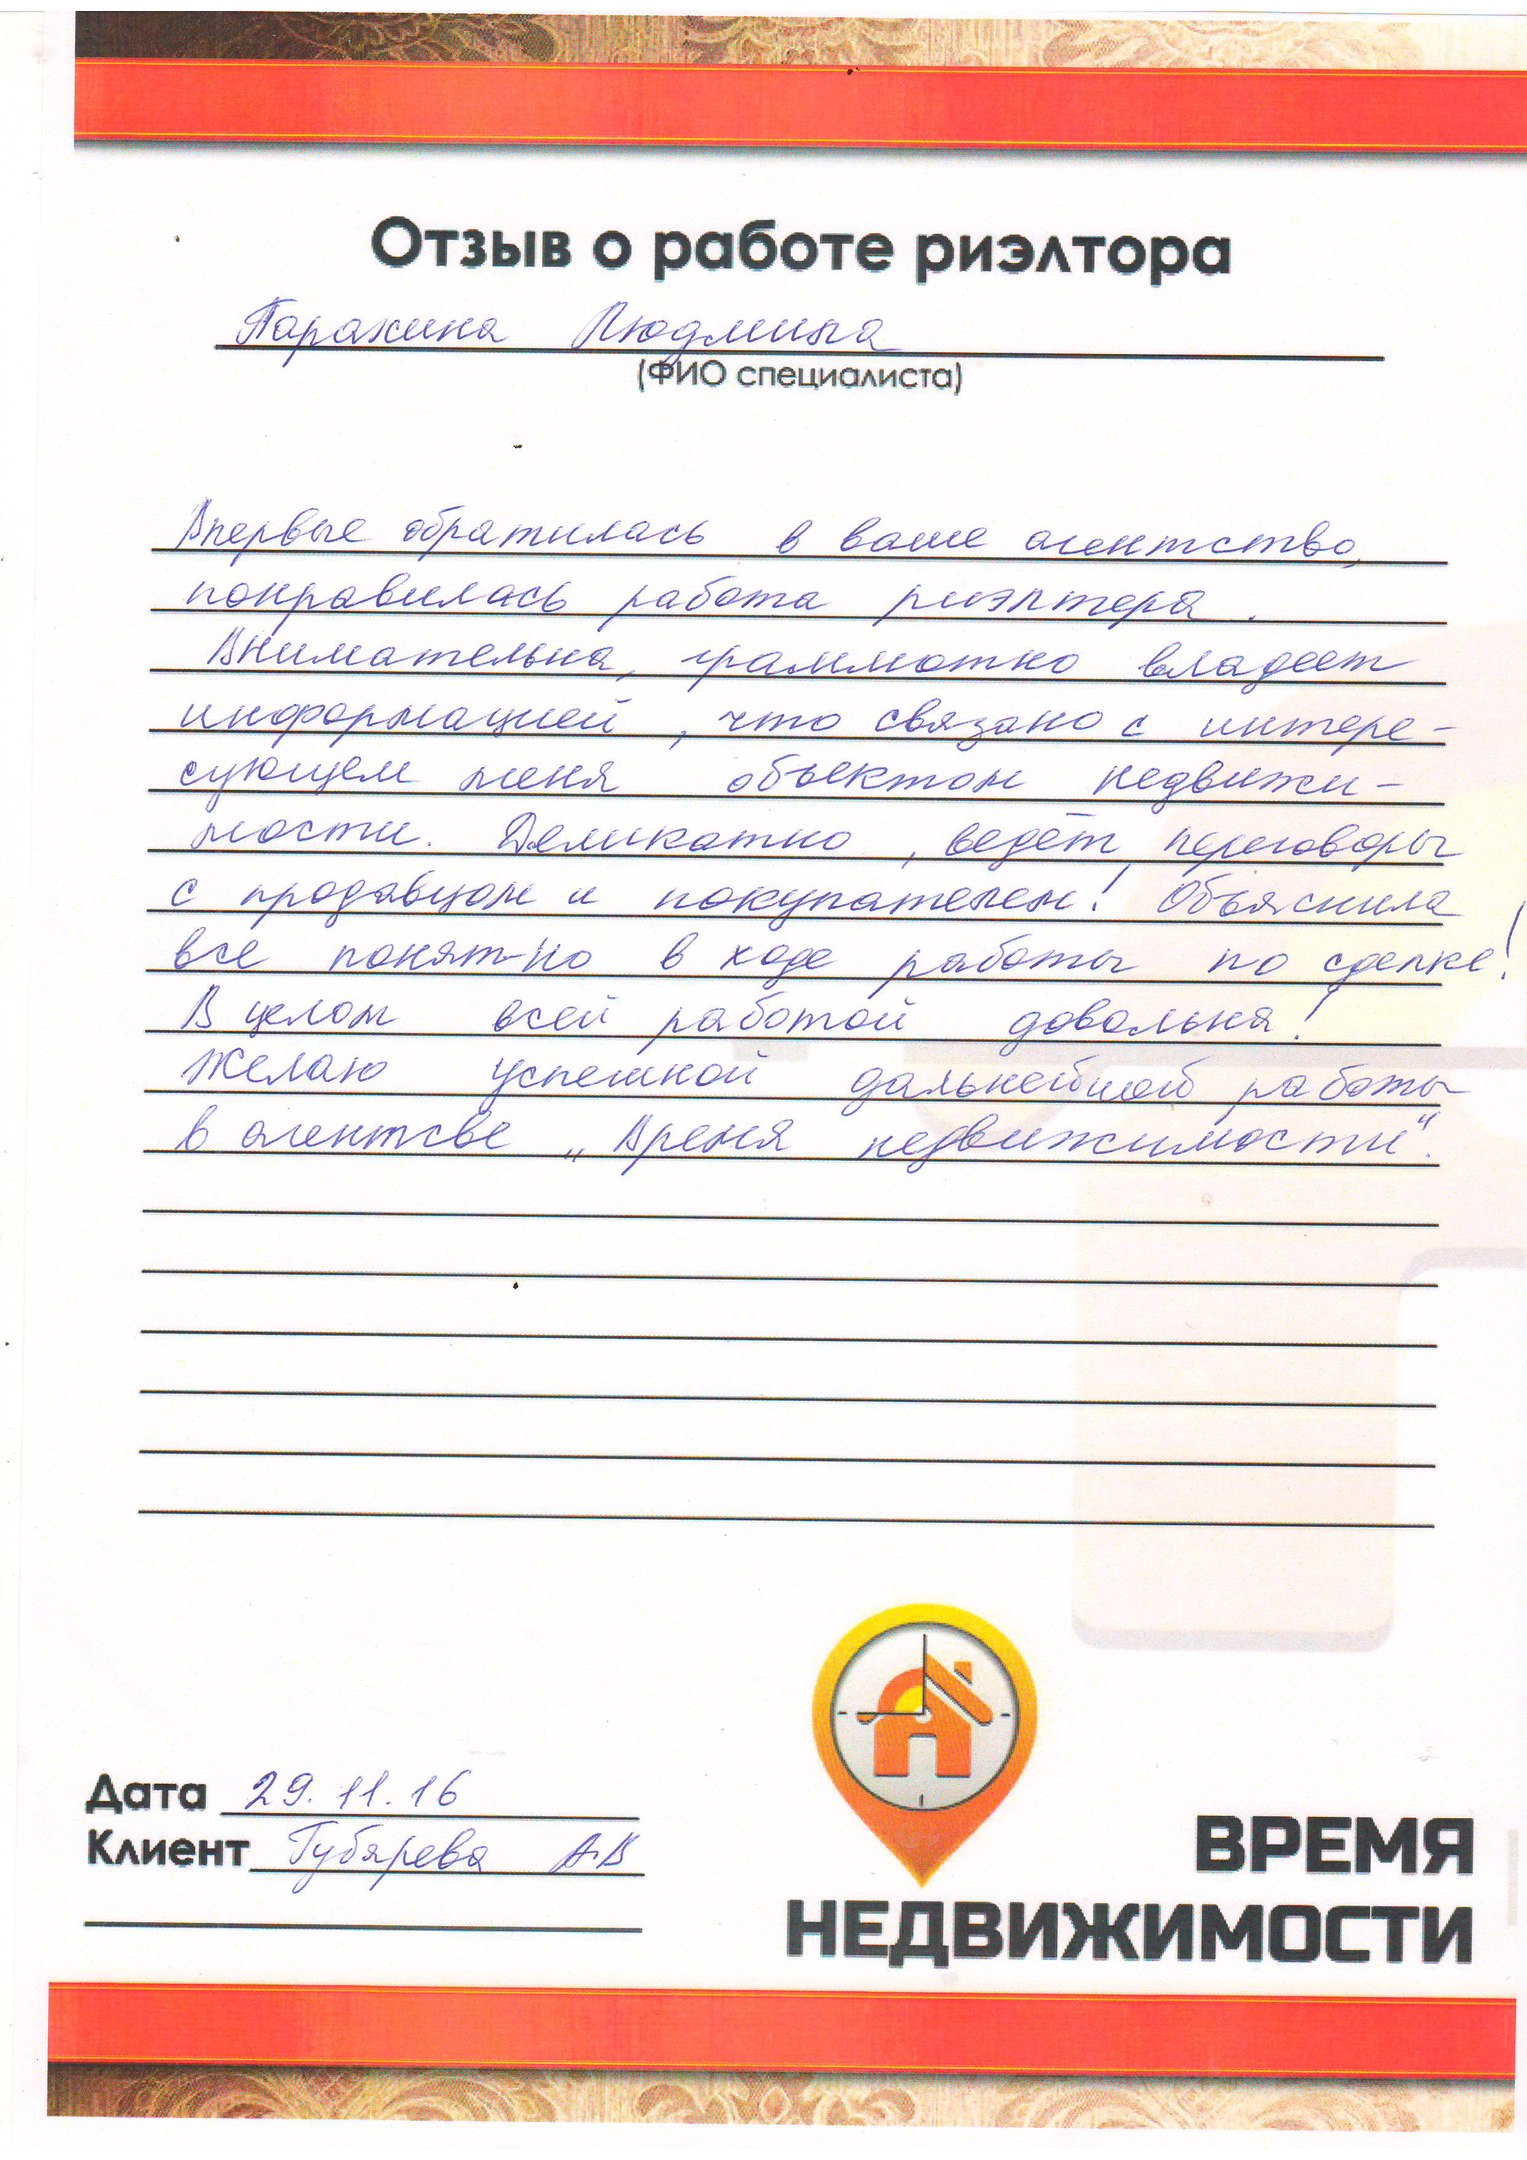 Отзыв о работе риэлтора
Парахина Людмила
(ФИО специалиста)
Впервые обратилась в ваше агентство,
понравилась работа риэлтера.
Внимательна, граммотно владеет
информацией, что связано с интере-
сующем меня объектом недвижи-
мости. Деликатно, ведёт переговоры
с продавцом и покупателем! Объяснила
все понятно в ходе работы по сделке!
В целом всей работой довольна!
Желаю успешной дальнейшей работы
в агентсве „Время недвижимости“.
Дата 29.11.16
Клиент Губарева А.В
ВРЕМЯ
НЕДВИЖИМОСТИ